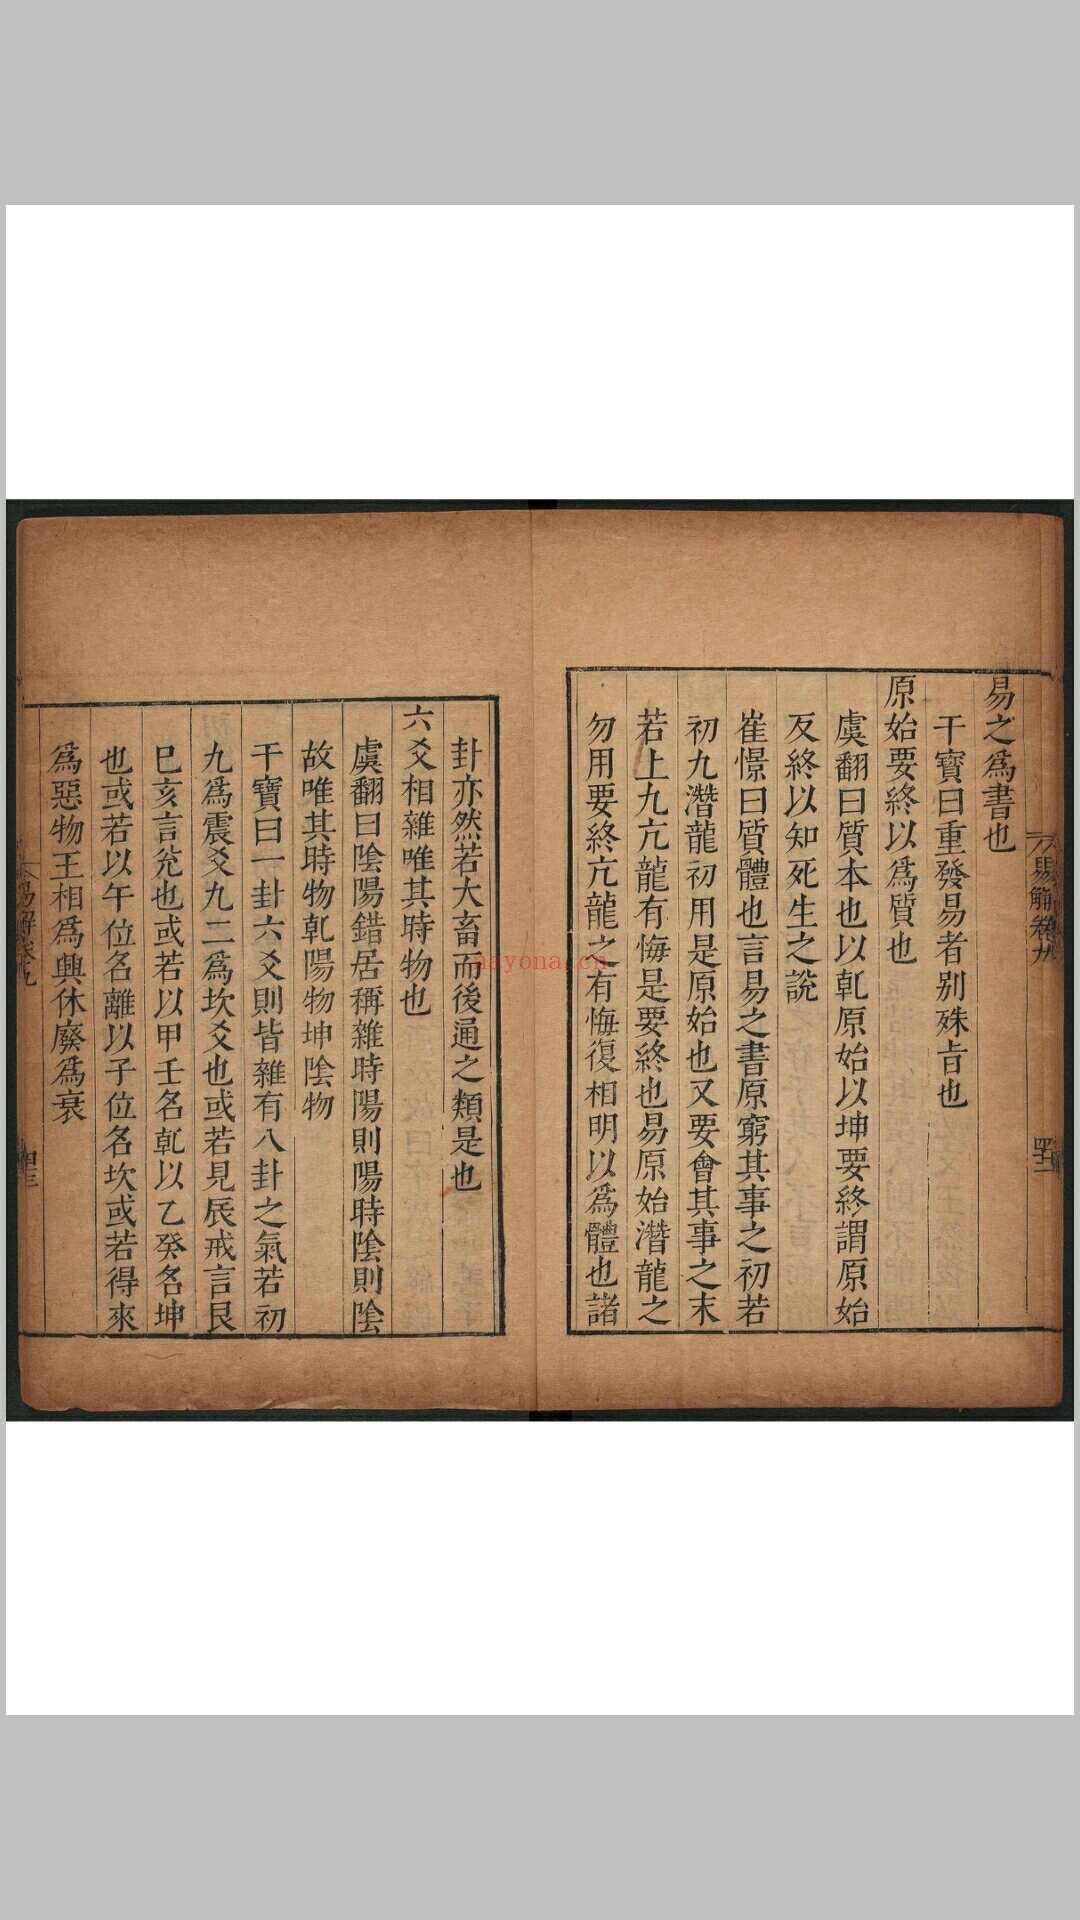 易解卷九
四十二
易之爲書也
干寶曰重發易者别殊㫖也
原始要終以爲質也
虞翻曰質本也以乹原始以坤要終謂原始
反終以知死生之說
崔憬曰質體也言易之書原窮其事之初若
初九潛龍初用是原始也又要會其事之末
若上九亢龍有悔是要終也易原始潛龍之
勿用要終亢龍之有悔復相明以爲體也諸
卦亦然若大畜而後通之類是也
六爻相雜唯其時物也
虞翻曰陰陽錯居稱雜時陽則陽時陰則陰
故唯其時物乹陽物坤陰物
干寶曰一卦六爻則皆雜有八卦之氣若初
九爲震爻九二爲坎爻也或若見辰戒言艮
巳亥言兊也或若以甲壬名乹以乙癸名坤
也或若以午位名離以子位名坎或若得來
爲惡物王相爲興休廢爲衰
易解卷九
四十三
nayona.cn